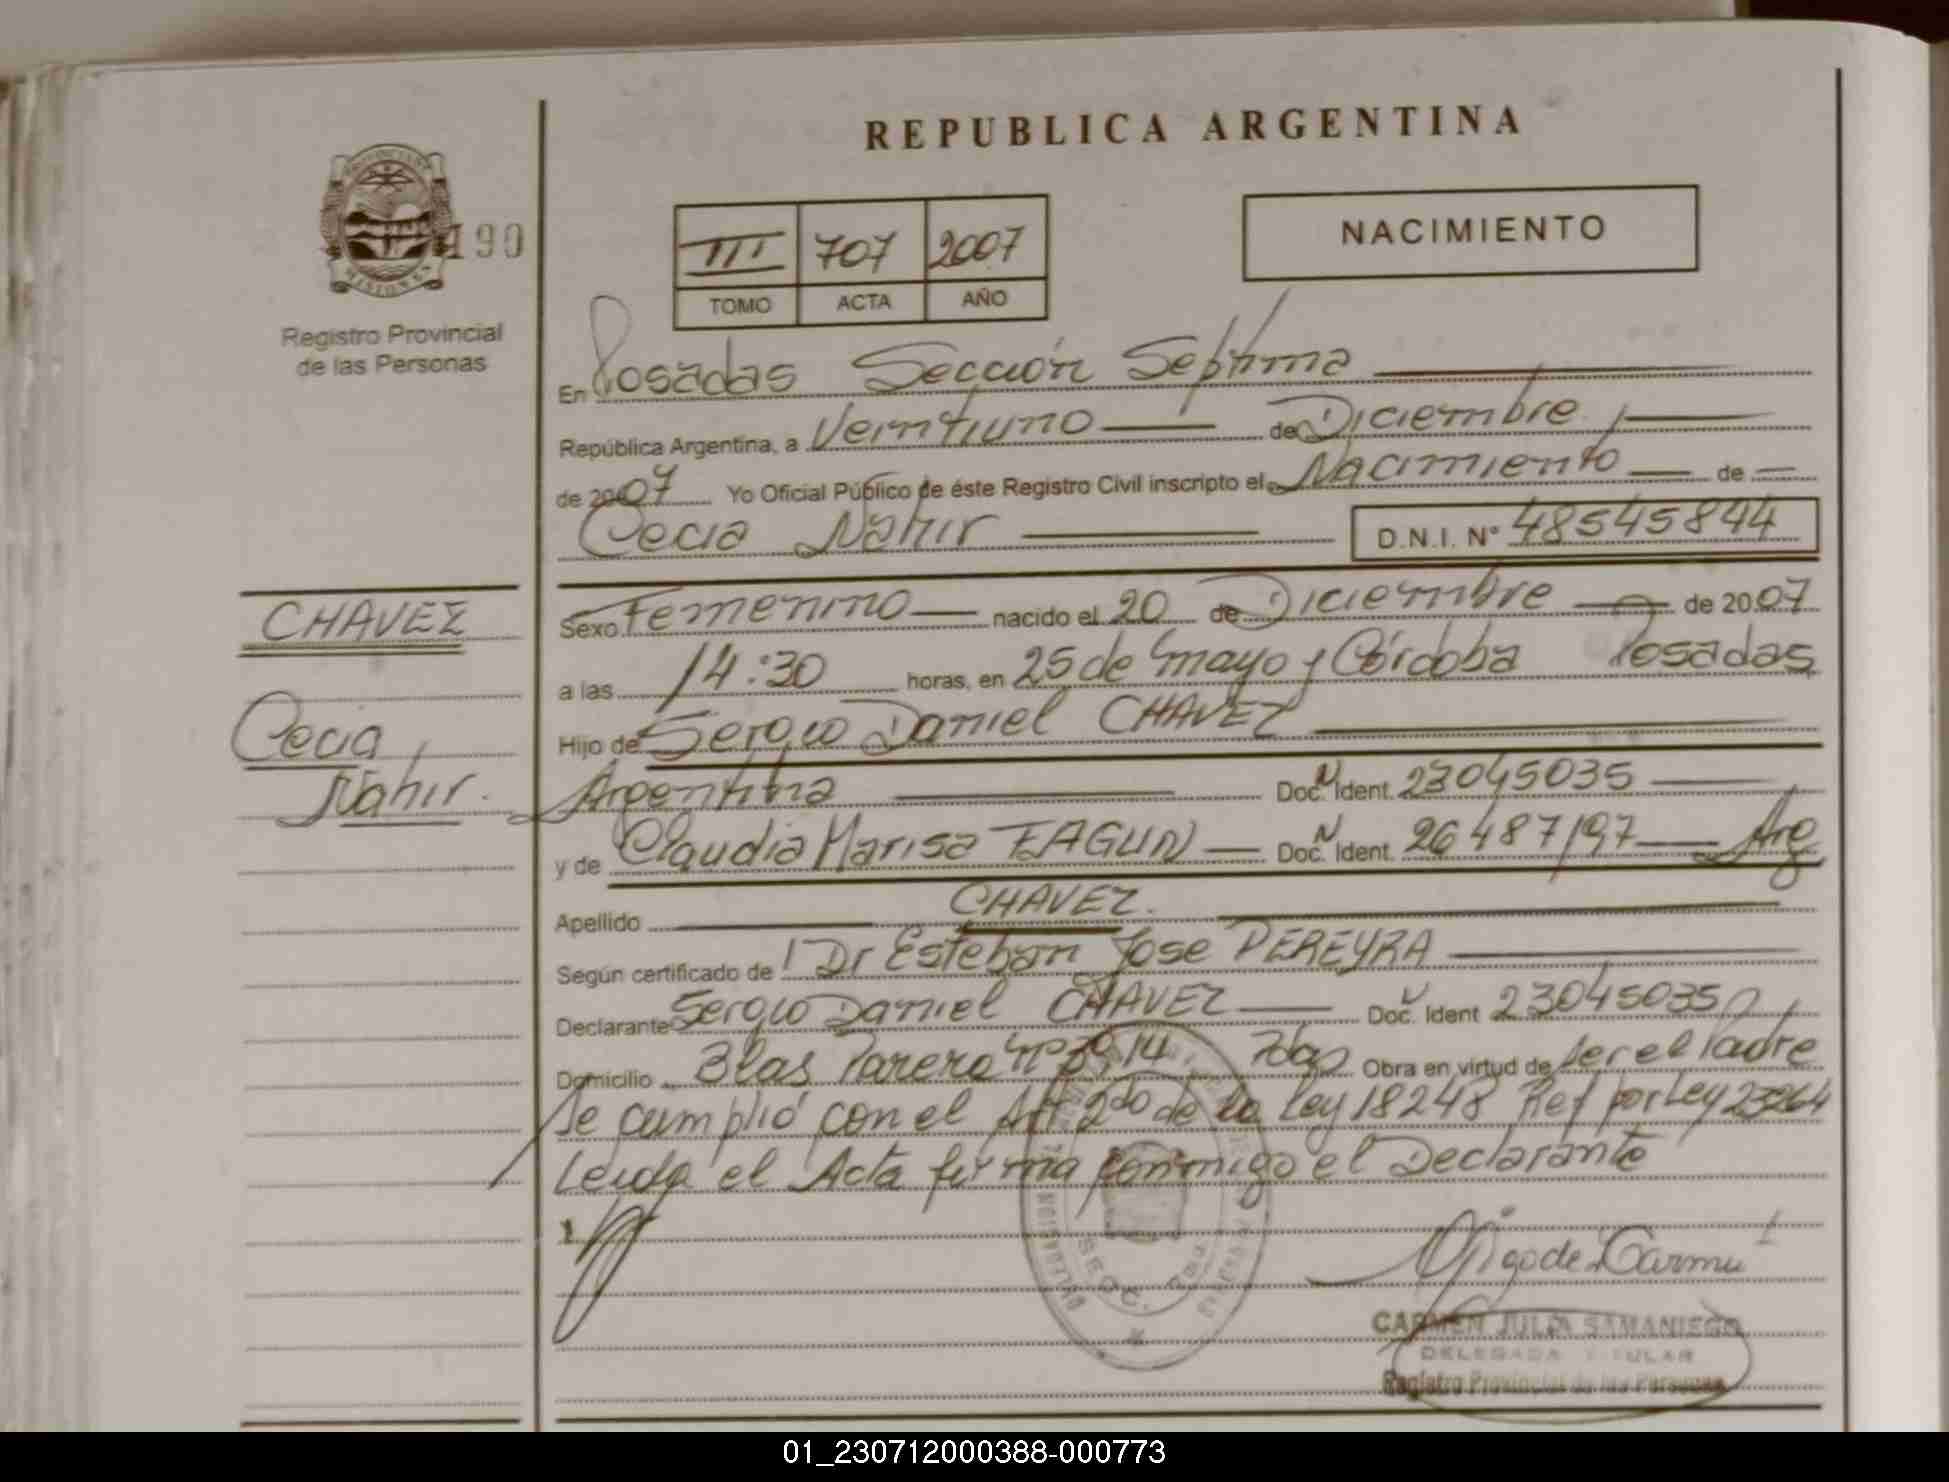 REPUBLICA ARGENTINA
PROVINCIA DE
MISIONES
190
Registro Provincial
de las Personas
III 707 2007
TOMO ACTA AÑO
NACIMIENTO
En Posadas Sección Septima
República Argentina, a Veintiuno de Diciembre
de 2007 Yo Oficial Público de éste Registro Civil inscripto el Nacimiento de
Cecia Nahir D.N.I. N° 48545844
CHAVEZ
Cecia
Nahir.
Sexo Femenino nacido el 20 de Diciembre de 2007
a las 14:30 horas, en 25 de Mayo y Córdoba Posadas
Hijo de Sergio Daniel CHAVEZ
Argentina Doc. N Ident. 23045035
y de Claudia Marisa FAGUN Doc. N Ident. 26487197 Arg
Apellido CHAVEZ.
Según certificado de Dr Esteban Jose PEREYRA
Declarante Sergio Daniel CHAVEZ Doc. Ident 23045035
Domicilio Blas Parera Nº 3914 Pdas Obra en virtud de ser el Padre
Se cumplió con el Art 2do de la Ley 18248 Ref por Ley 23264
Leida el Acta firma conmigo el Declarante
SECC.
CARMEN JULIA SAMANIEGO
DELEGADA TITULAR
Registro Provincial de las Personas
01_230712000388-000773